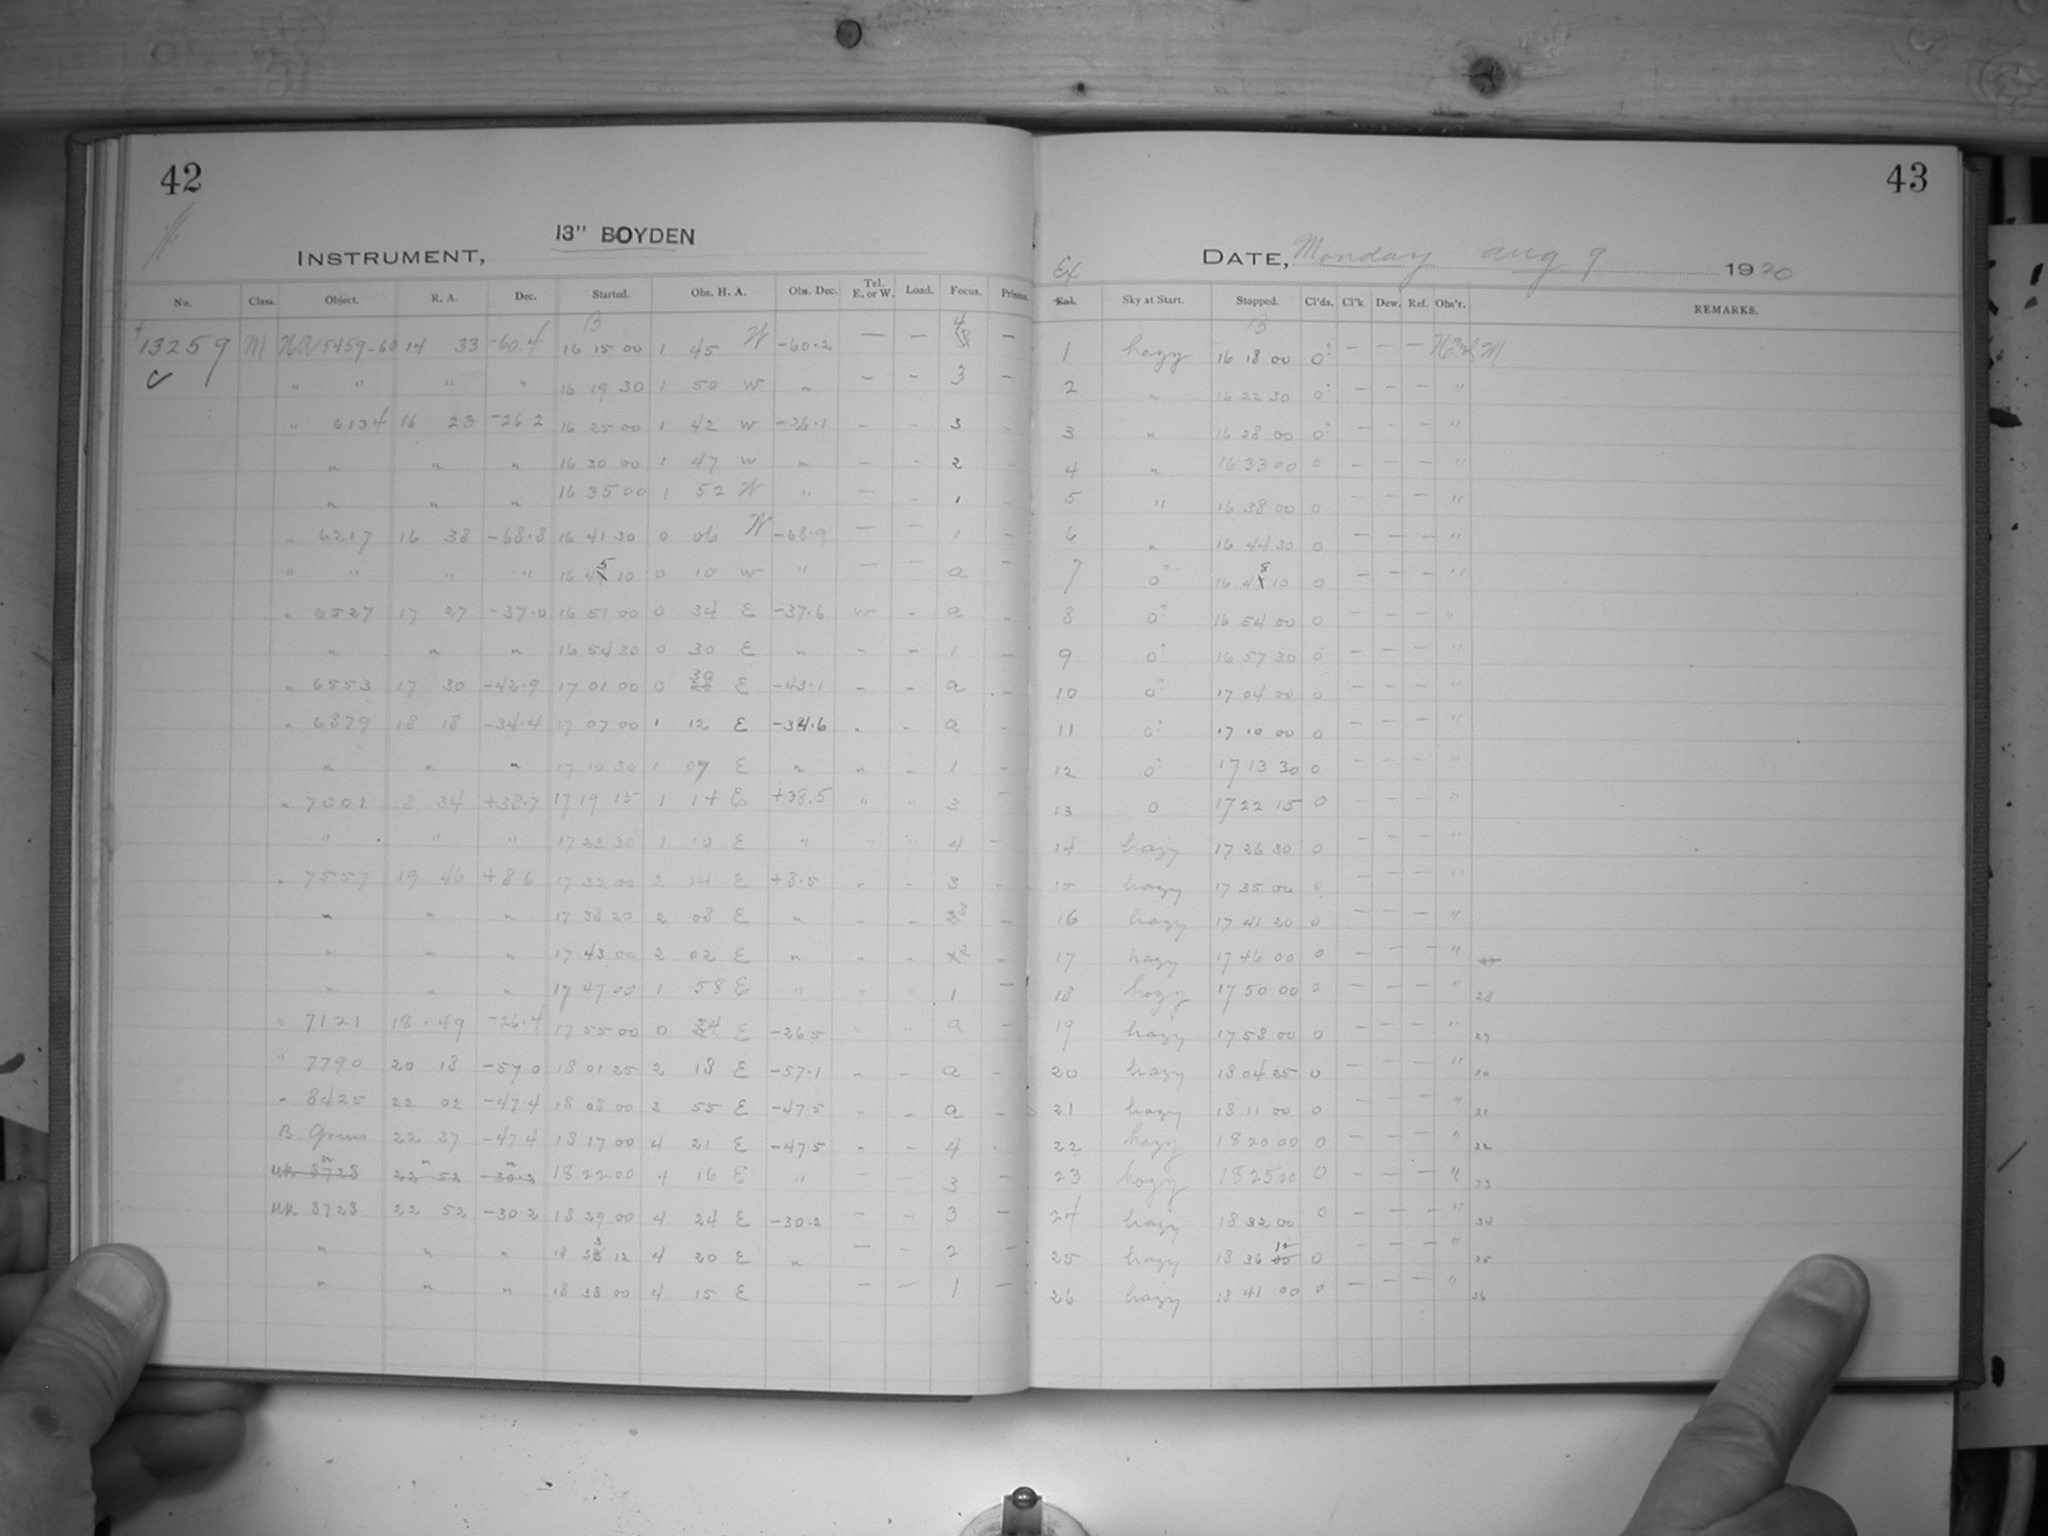 42
13" BOYDEN
INSTRUMENT,
No. Class. Object. R. A. Dec. Started. Obs. H. A. Obs. Dec. Tel. E. or W. Load. Focus. Prisms.
B
13259 M 5459-60 14 33 -60.4 16 15 00 1 45 W -60.2 — — 4 —
" " " " 16 19 30 1 50 W " — — 3 —
" 6134 16 23 -26.2 16 25 00 1 42 W -26.1 - - 3 -
" " " 16 30 00 1 47 W " - - 2 -
" " " 16 35 00 1 52 W " — - 1 -
" 6217 16 38 -68.8 16 41 30 0 06 W -68.9 — — 1 -
" " " " 16 45 10 0 10 W " — — a -
" 6527 17 27 -37.0 16 51 00 0 34 E -37.6 W - a -
" " " 16 54 30 0 30 E " - - 1 -
" 6553 17 30 -42.9 17 01 00 0 30 E -43.1 - - a -
" 6879 18 18 -34.4 17 07 00 1 12 E -34.6 - - a -
" " " 17 10 30 1 07 E " " - 1 -
" 7001 18 34 +38.7 17 19 15 1 14 E +38.5 " " 3 -
" " " 17 23 30 1 10 E " " " 4 -
" 7557 19 46 +8.6 17 32 00 2 14 E +8.5 " - 3 -
" " " 17 38 20 2 08 E " " - 3 -
" " " 17 43 00 2 02 E " " - 2 -
" " " 17 47 00 1 58 E " " " 1 -
" 7121 18 49 -26.4 17 55 00 0 54 E -26.5 " " a -
" 7790 20 18 -57.0 18 01 25 2 18 E -57.1 - - a -
" 8425 22 02 -47.4 18 08 00 2 55 E -47.5 " - a -
B Gruis 22 37 -47.4 18 17 00 4 21 E -47.5 " - 4 -
" " " 18 22 00 4 16 E " - - 3 -
HR 8728 22 52 -30.2 18 29 00 4 24 E -30.2 — - 3 -
" " " 18 33 12 4 20 E " — - 2 -
" " " 18 38 00 4 15 E — — 1 -
43
DATE, Monday Aug 9 1920
Ex
Sky at Start. Stopped. Cl'ds. Cl'k. Dew. Ref. Obs'r. REMARKS.
B
1 hazy 16 18 00 0? - - - M
2 " 16 22 30 0? - - - "
3 " 16 28 00 0? - - - "
4 " 16 33 00 0 - - - "
5 " 16 38 00 0 - - - "
6 " 16 44 30 0 - - - "
7 0? 16 48 10 0 - - - "
8 0? 16 54 00 0 - - - "
9 0? 16 57 30 0 - - - "
10 0? 17 04 00 0 - - - "
11 0? 17 10 00 0 - - - "
12 0? 17 13 30 0 - - - "
13 0 17 22 15 0 - - - "
14 hazy 17 26 30 0 - - - "
15 hazy 17 35 00 0 - - - "
16 hazy 17 41 20 0 - - - "
17 hazy 17 46 00 0 - - - "
18 hazy 17 50 00 0 - - - " 28
19 hazy 17 58 00 0 - - - " 29
20 hazy 18 04 25 0 - - - " 30
21 hazy 18 11 00 0 - - - " 31
22 hazy 18 20 00 0 - - - " 32
23 hazy 18 25 00 0 - - - " 33
24 hazy 18 32 00 0 - - - " 34
25 hazy 18 36 12 0 - - - " 35
26 hazy 18 41 00 0 - - - " 36